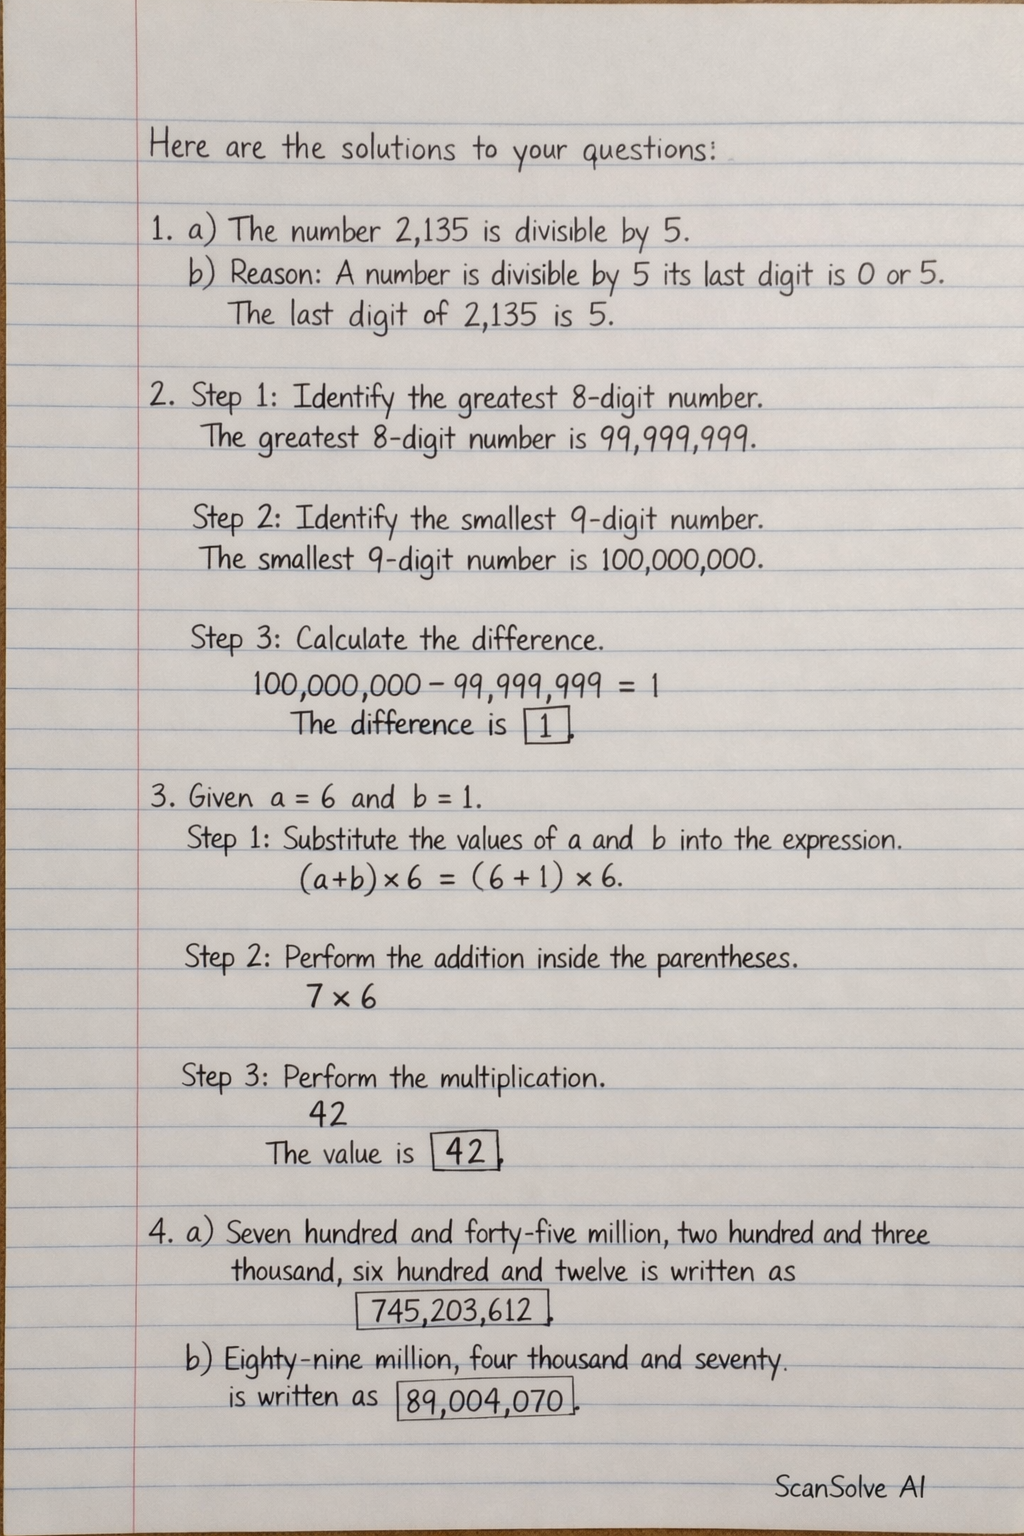 Here are the solutions to your questions:
1. a) The number 2,135 is divisible by 5.
b) Reason: A number is divisible by 5 its last digit is 0 or 5.
The last digit of 2,135 is 5.
2. Step 1: Identify the greatest 8-digit number.
The greatest 8-digit number is 99,999,999.
Step 2: Identify the smallest 9-digit number.
The smallest 9-digit number is 100,000,000.
Step 3: Calculate the difference.
100,000,000 - 99,999,999 = 1
The difference is 1.
3. Given a = 6 and b = 1.
Step 1: Substitute the values of a and b into the expression.
(a+b) × 6 = (6 + 1) × 6.
Step 2: Perform the addition inside the parentheses.
7 × 6
Step 3: Perform the multiplication.
42
The value is 42.
4. a) Seven hundred and forty-five million, two hundred and three
thousand, six hundred and twelve is written as
745,203,612.
b) Eighty-nine million, four thousand and seventy.
is written as 89,004,070.
ScanSolve AI